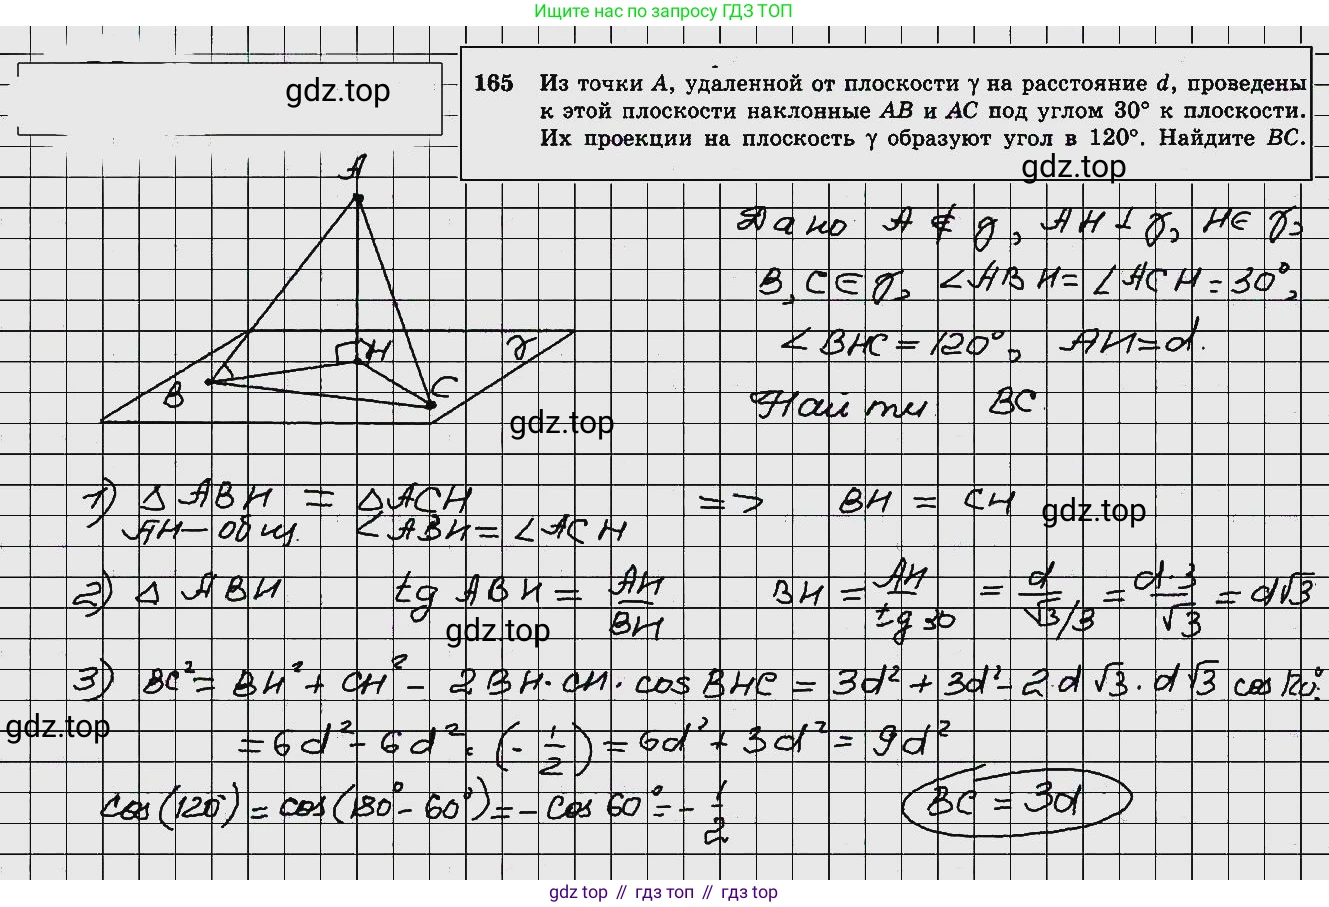 Ищите нас по запросу ГДЗ ТОП
gdz.top
165 Из точки A, удаленной от плоскости γ на расстояние d, проведены
к этой плоскости наклонные AB и AC под углом 30° к плоскости.
Их проекции на плоскость γ образуют угол в 120°. Найдите BC.
gdz.top
A
H
γ
B
C
gdz.top
Дано A ∉ γ, AH ⊥ γ, H ∈ γ,
B, C ∈ γ, ∠ABH = ∠ACH = 30°,
∠BHC = 120°, AH = d.
Найти BC
1) △ ABH = △ACH => BH = CH
AH – общ. ∠ABH = ∠ACH
gdz.top
2) △ ABH tg ABH = AH/BH BH = AH/tg 30 = d/(√3/3) = d·3/√3 = d√3
gdz.top
3) BC² = BH² + CH² - 2BH·CH·cos BHC = 3d² + 3d² - 2·d√3·d√3 cos 120°=
gdz.top
= 6d² - 6d²·(-1/2) = 6d² + 3d² = 9d²
cos(120°) = cos(180° - 60°) = - cos 60° = - 1/2
BC = 3d
gdz top // гдз топ // гдз top